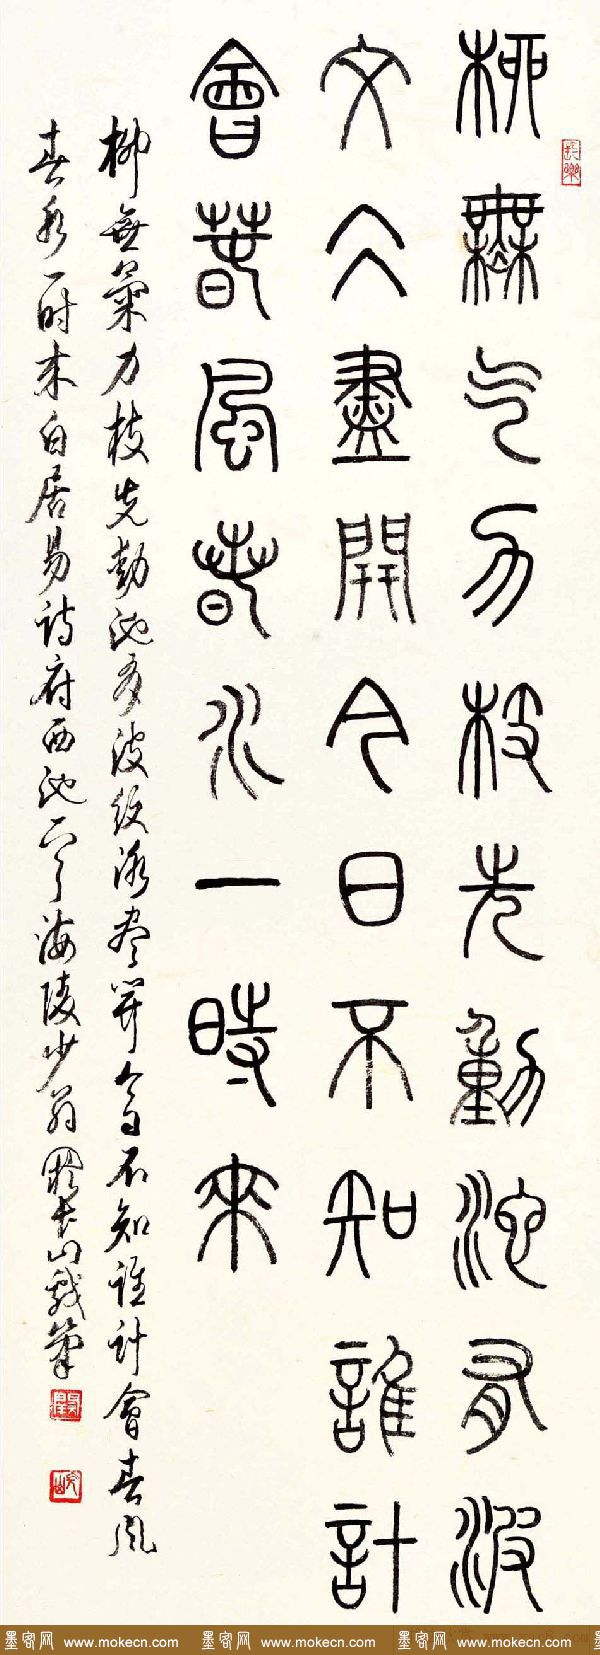 長樂
柳無气力枝先動池有波
文仌盡開今日不知誰計
會春風春水一時來
柳無氣力枝先動池有波紋冰盡開今日不知誰計會春風
春水一時來白居易詩府西池海陵少翁山戲筆
墨客网 www.mokecn.com 墨客网 www.mokecn.com 墨客网 www.mokecn.com